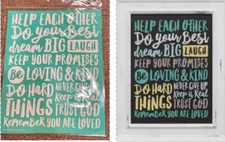 HELP EACH OTHER
Do your Best
dream BIG LAUGH
KEEP YOUR PROMISES
Be LOVING & KIND
DO HARD NEVER GIVE UP
keep it Real
THINGS TRUST GOD
Remember YOU ARE LOVED
HELP EACH OTHER
Do your Best
dream BIG LAUGH
KEEP YOUR PROMISES
Be LOVING & KIND
DO HARD NEVER GIVE UP
keep it Real
THINGS TRUST GOD
Remember YOU ARE LOVED